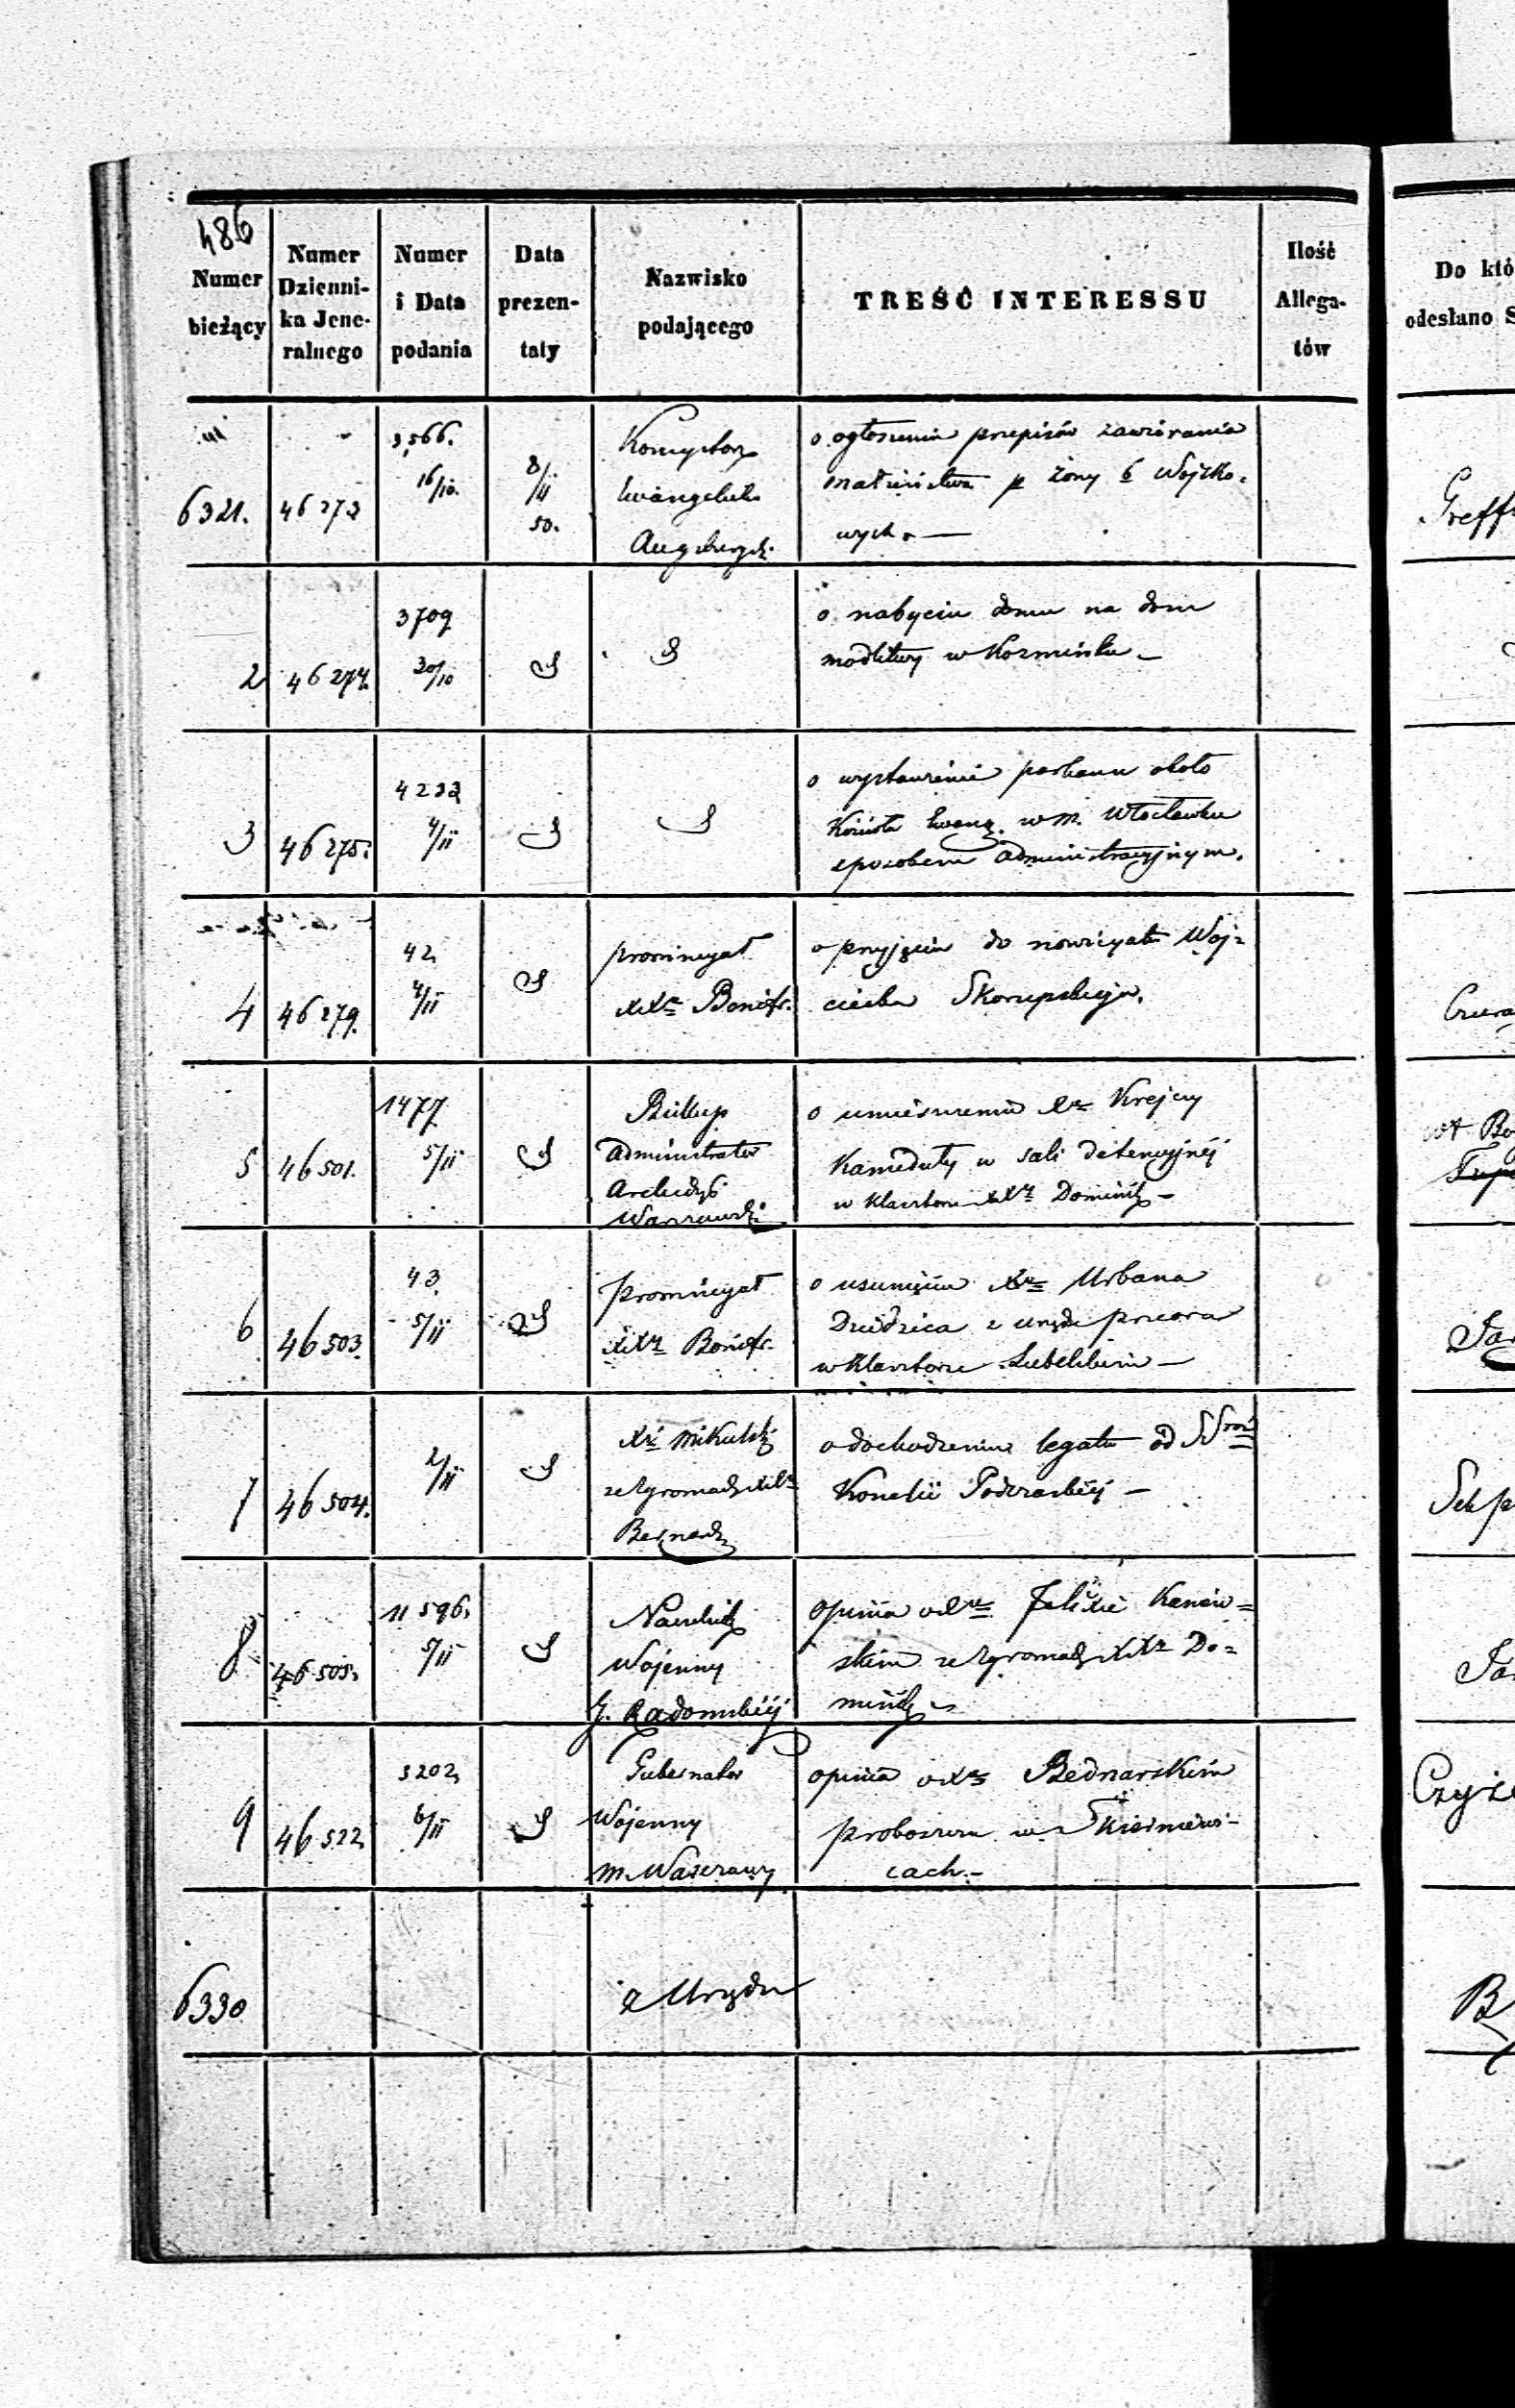 486
Numer bieżący
Numer Dzienni-
ka Jene-
ralnego
Numer
i Data
podania
Data
prezen-
taty
Nazwisko
podającego
TREŚĆ INTERESSU
Ilość
Allega-
tów
Do któ
odesłano S
6321. 46273
3,566.
16/10.
8/11
50.
Konsystorz
Ewangelicko
Augsburgski
o ogłoszenie przepisów zawierania
małżeństwa p żony b Wojsko-
wych. —
Greff
2 46274.
3709
30/10
o nabyciu domu na dom
modlitwy w Kozminku —
3 46275.
4233
4/11
o wystawienie parkanu około
Kościoła Ewang. w m. Włocławku
sposobem administracyjnym.
4 46279.
42
4/11
prowincyał
XXr Bonifr.
o przyjęciu do nowicyatu Woj-
ciecha Skorupskiego.
5 46501.
1477
5/11
Biskup
Administrator
Archidyś
Warszawski
o umieszczeniu Xr Krejcy
Kameduły w sali detencyjnéj
w klasztorze XXr Dominik —
6 46503.
43
5/11
prowincyał
XXr Bonifr.
o usunięciu Xr Urbana
Dziedzica z urzędu przeora
w Klasztorze Lubelskim —
7 46504.
2/11
Xr Mikulski
ze Zgromadz XXr
Bernard
o dochodzenie legatu od
Podczaskiéj —
8 46505.
11596.
5/11
Naczelnik
Wojenny
G. Radomskiéj
Opinia o Xr Felixie Kaniew-
skim ze Zgromadz XXr Do-
minik
Ja
9 46522
5202
6/11
Gubernator
Wojenny
m. Warszawy
opinia o Xr Bednarskim
proboszczu w Skierniewi-
cach. —
6330
z Urzędu